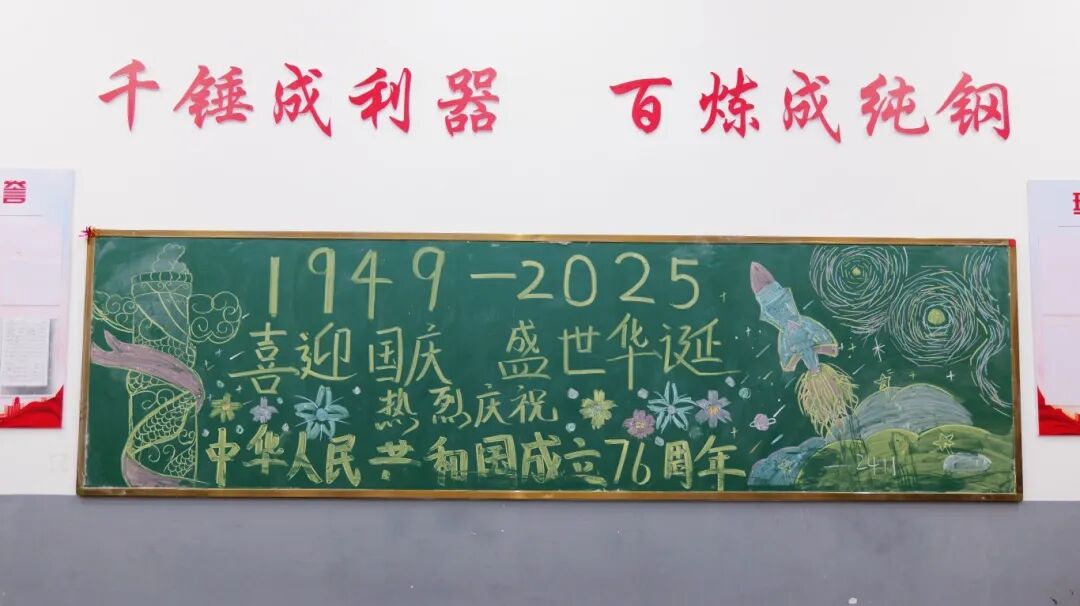 千锤成利器 百炼成纯钢
誉
1949-2025
喜迎国庆 盛世华诞
热烈庆祝
中华人民共和国成立76周年
2411